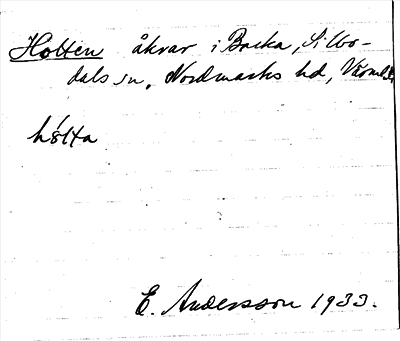 Holten åkrar i Backa, Silbo-
dals sn, Nordmarks hd, Värml.
hɵ́lta
E. Andersson 1933.